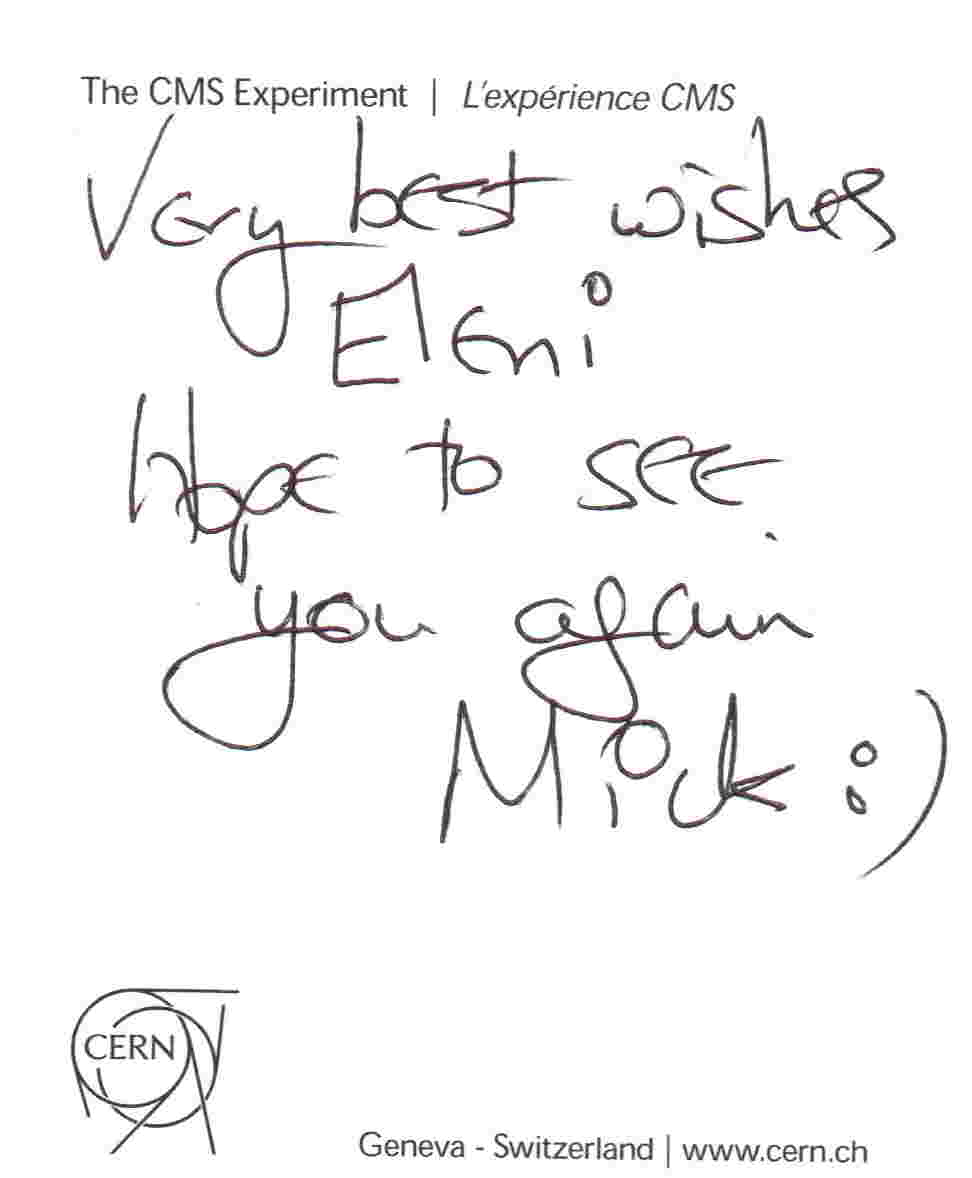 The CMS Experiment | L'expérience CMS
Very best wishes
Eleni
Hope to see
you again
Mick :)
CERN
Geneva - Switzerland | www.cern.ch